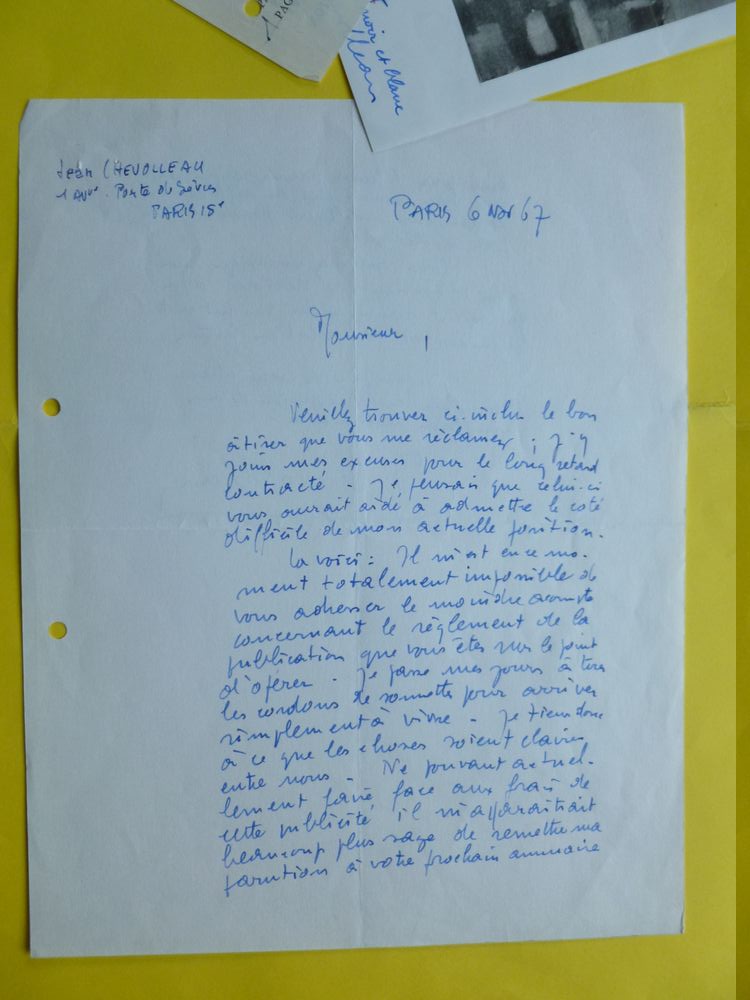 PAG
noir et blanc
Jean CHEVOLLEAU
1 Avue. Porte de Sèvres
PARIS 15e
PARIS 6 Nov 67
Monsieur,
Veuillez trouver ci-inclus le bon
à tirer que vous me réclamez ; J'y
joins mes excuses pour le long retard
contracté - Je pensais que celui-ci
vous aurait aidé à admettre le coté
difficile de mon actuelle position.
La voici : Il m'est en ce mo-
ment totalement impossible de
vous adresser le moindre acompte
concernant le règlement de la
publication que vous êtes sur le point
d'opérer - Je passe mes jours à tirer
les cordons de sonnettes pour arriver
simplement à vivre - Je tiens donc
à ce que les choses soient claires
entre nous - Ne pouvant actuel-
lement faire face aux frais de
cette publicité il m'apparaitrait
beaucoup plus sage de remettre ma
parution à votre prochain annuaire